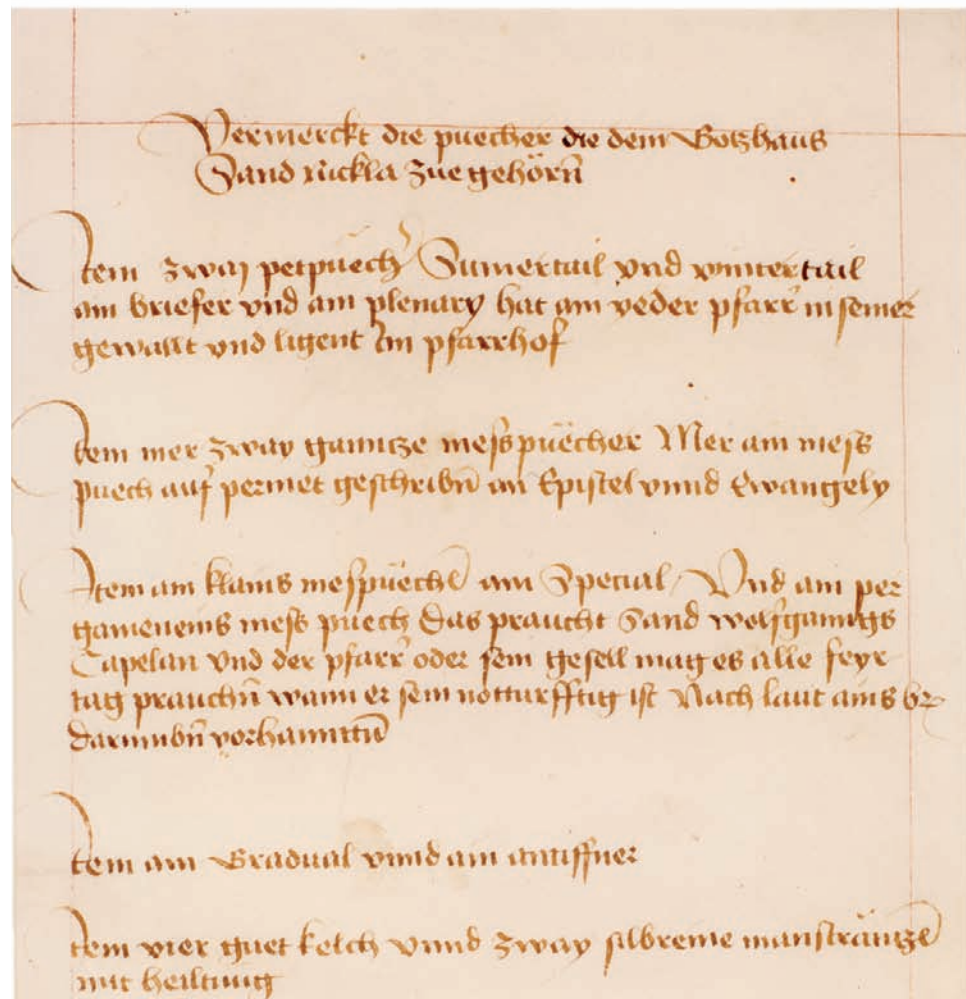 Vermerckt die puecher die dem Gotzhaus
Sand Nickla zue gehörn̄
Item zway petpüech̄ Sumertail vnd wintertail
ain briefer vnd ain plenary hat ain yeder pfarr̄ in seiner
gewallt vnd ligent im pfarrhof
Item mer zway ganntze messpüecher Mer ain mess
puech auf permet geschribn̄ an Epistel vnnd Ewangely
Item ain klains mespüechl̄ ain Special Vnd ain per
gameneins mess puech das praucht Sand wolfganngs
Capelan vnd der pfarr̄ oder sein gesell mag es alle feyr
tag prauchn̄ wann er sein notturfftig ist Nach laut ains br̄
darumbn̄ vorhanntn̄
Item ain Gradual vnnd ain antiffner
Item vier guet kelch vnnd zway silbreine mansträntzn̄
mit heiltung